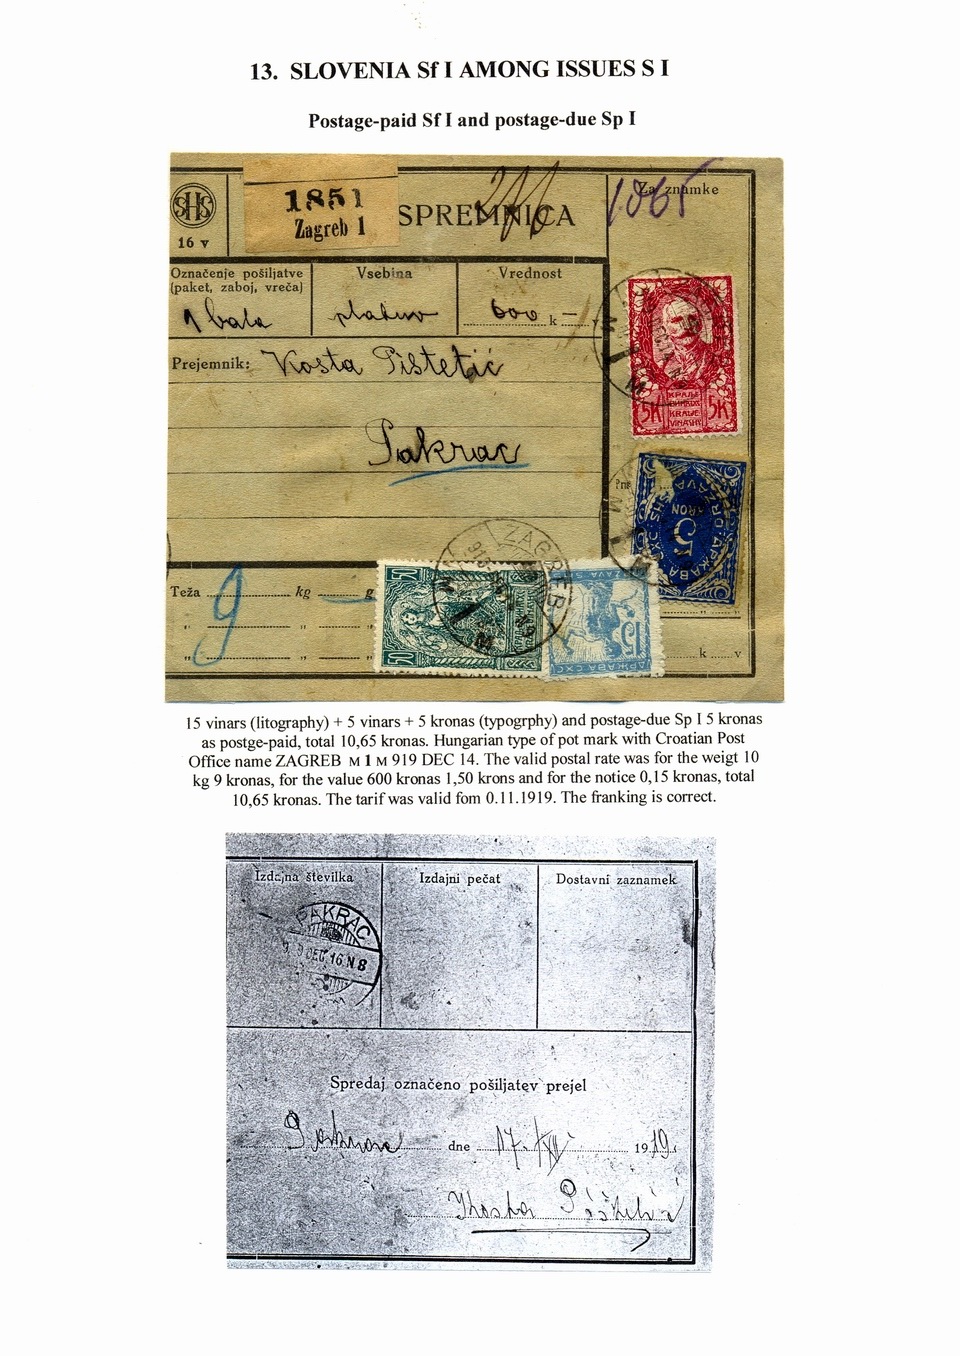 13. SLOVENIA Sf I AMONG ISSUES S I
Postage-paid Sf I and postage-due Sp I
SHS
16 v
1851
Zagreb 1
SPREMNICA
1065
Za znamke
Označenje pošiljatve
(paket, zaboj, vreča)
Vsebina
Vrednost
1 bala
platno
600 k
Prejemnik: Kosta Pištetić
Pakrac
5K
КРАЉЕ
KRALJE
VINA
5K
5
ДРЖАВА
Teža 9 kg g
" " "
" " "
50
50
ZAGREB
15
ДРЖАВА СХС
k v
15 vinars (litography) + 5 vinars + 5 kronas (typogrphy) and postage-due Sp I 5 kronas
as postge-paid, total 10,65 kronas. Hungarian type of pot mark with Croatian Post
Office name ZAGREB M 1 M 919 DEC 14. The valid postal rate was for the weigt 10
kg 9 kronas, for the value 600 kronas 1,50 krons and for the notice 0,15 kronas, total
10,65 kronas. The tarif was valid fom 0.11.1919. The franking is correct.
Izdajna številka
Izdajni pečat
Dostavni zaznamek
PAKRAC
9 DEC 16 N8
Spredaj označeno pošiljatev prejel
Pakrac dne 17. XII 1919.
Kosta Pištetić